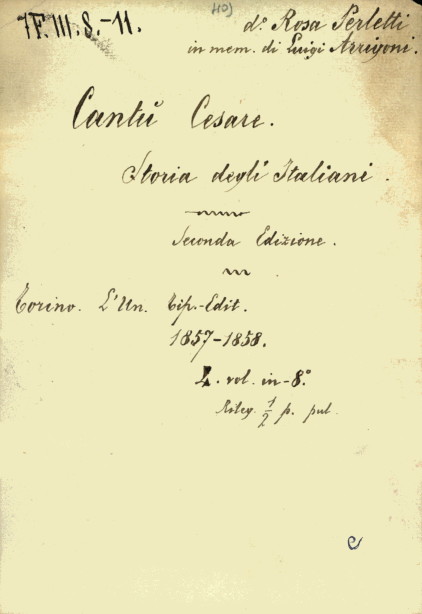 7F.III.8.-11.
d.º Rosa Perletti
in mem. di Luigi Arrigoni.
Cantù Cesare.
Storia degli Italiani.
Seconda Edizione.
Torino. L'Un. Tip.-Edit.
1857-1858.
4. vol. in-8.º
Rileg. 1/2 p. pul.